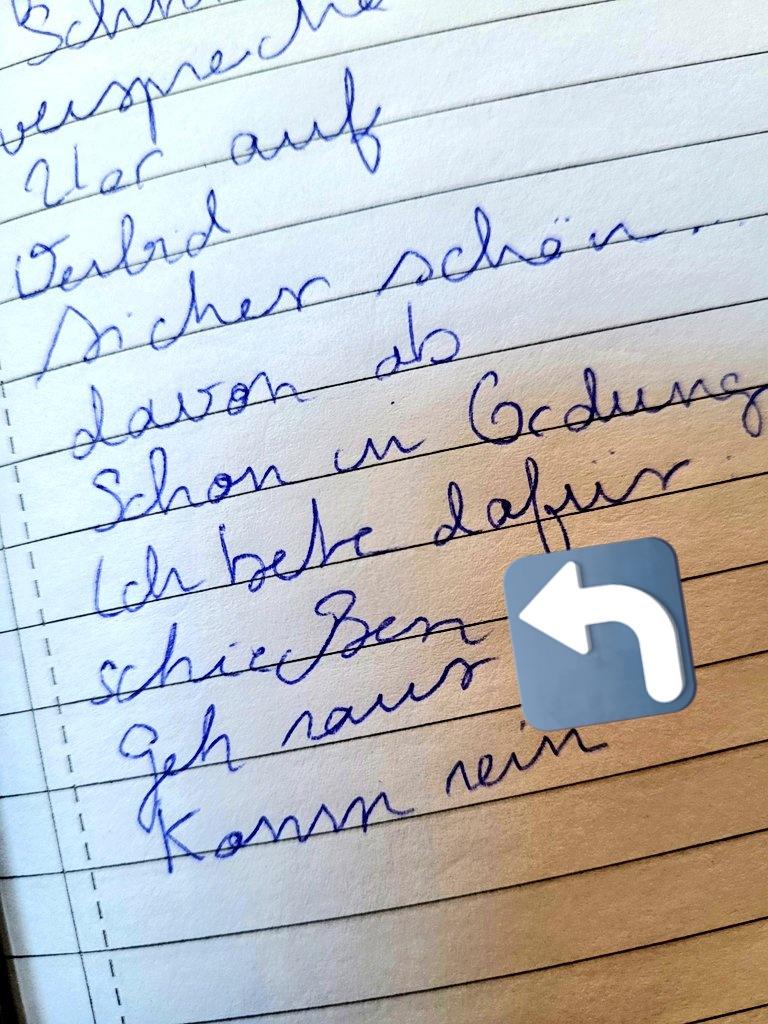 verspreche
Hör auf
Verbid
sicher schön...
davon ab
Schon in Ordung
Ich bete dafür
schießen
Geh raus
Komm rein